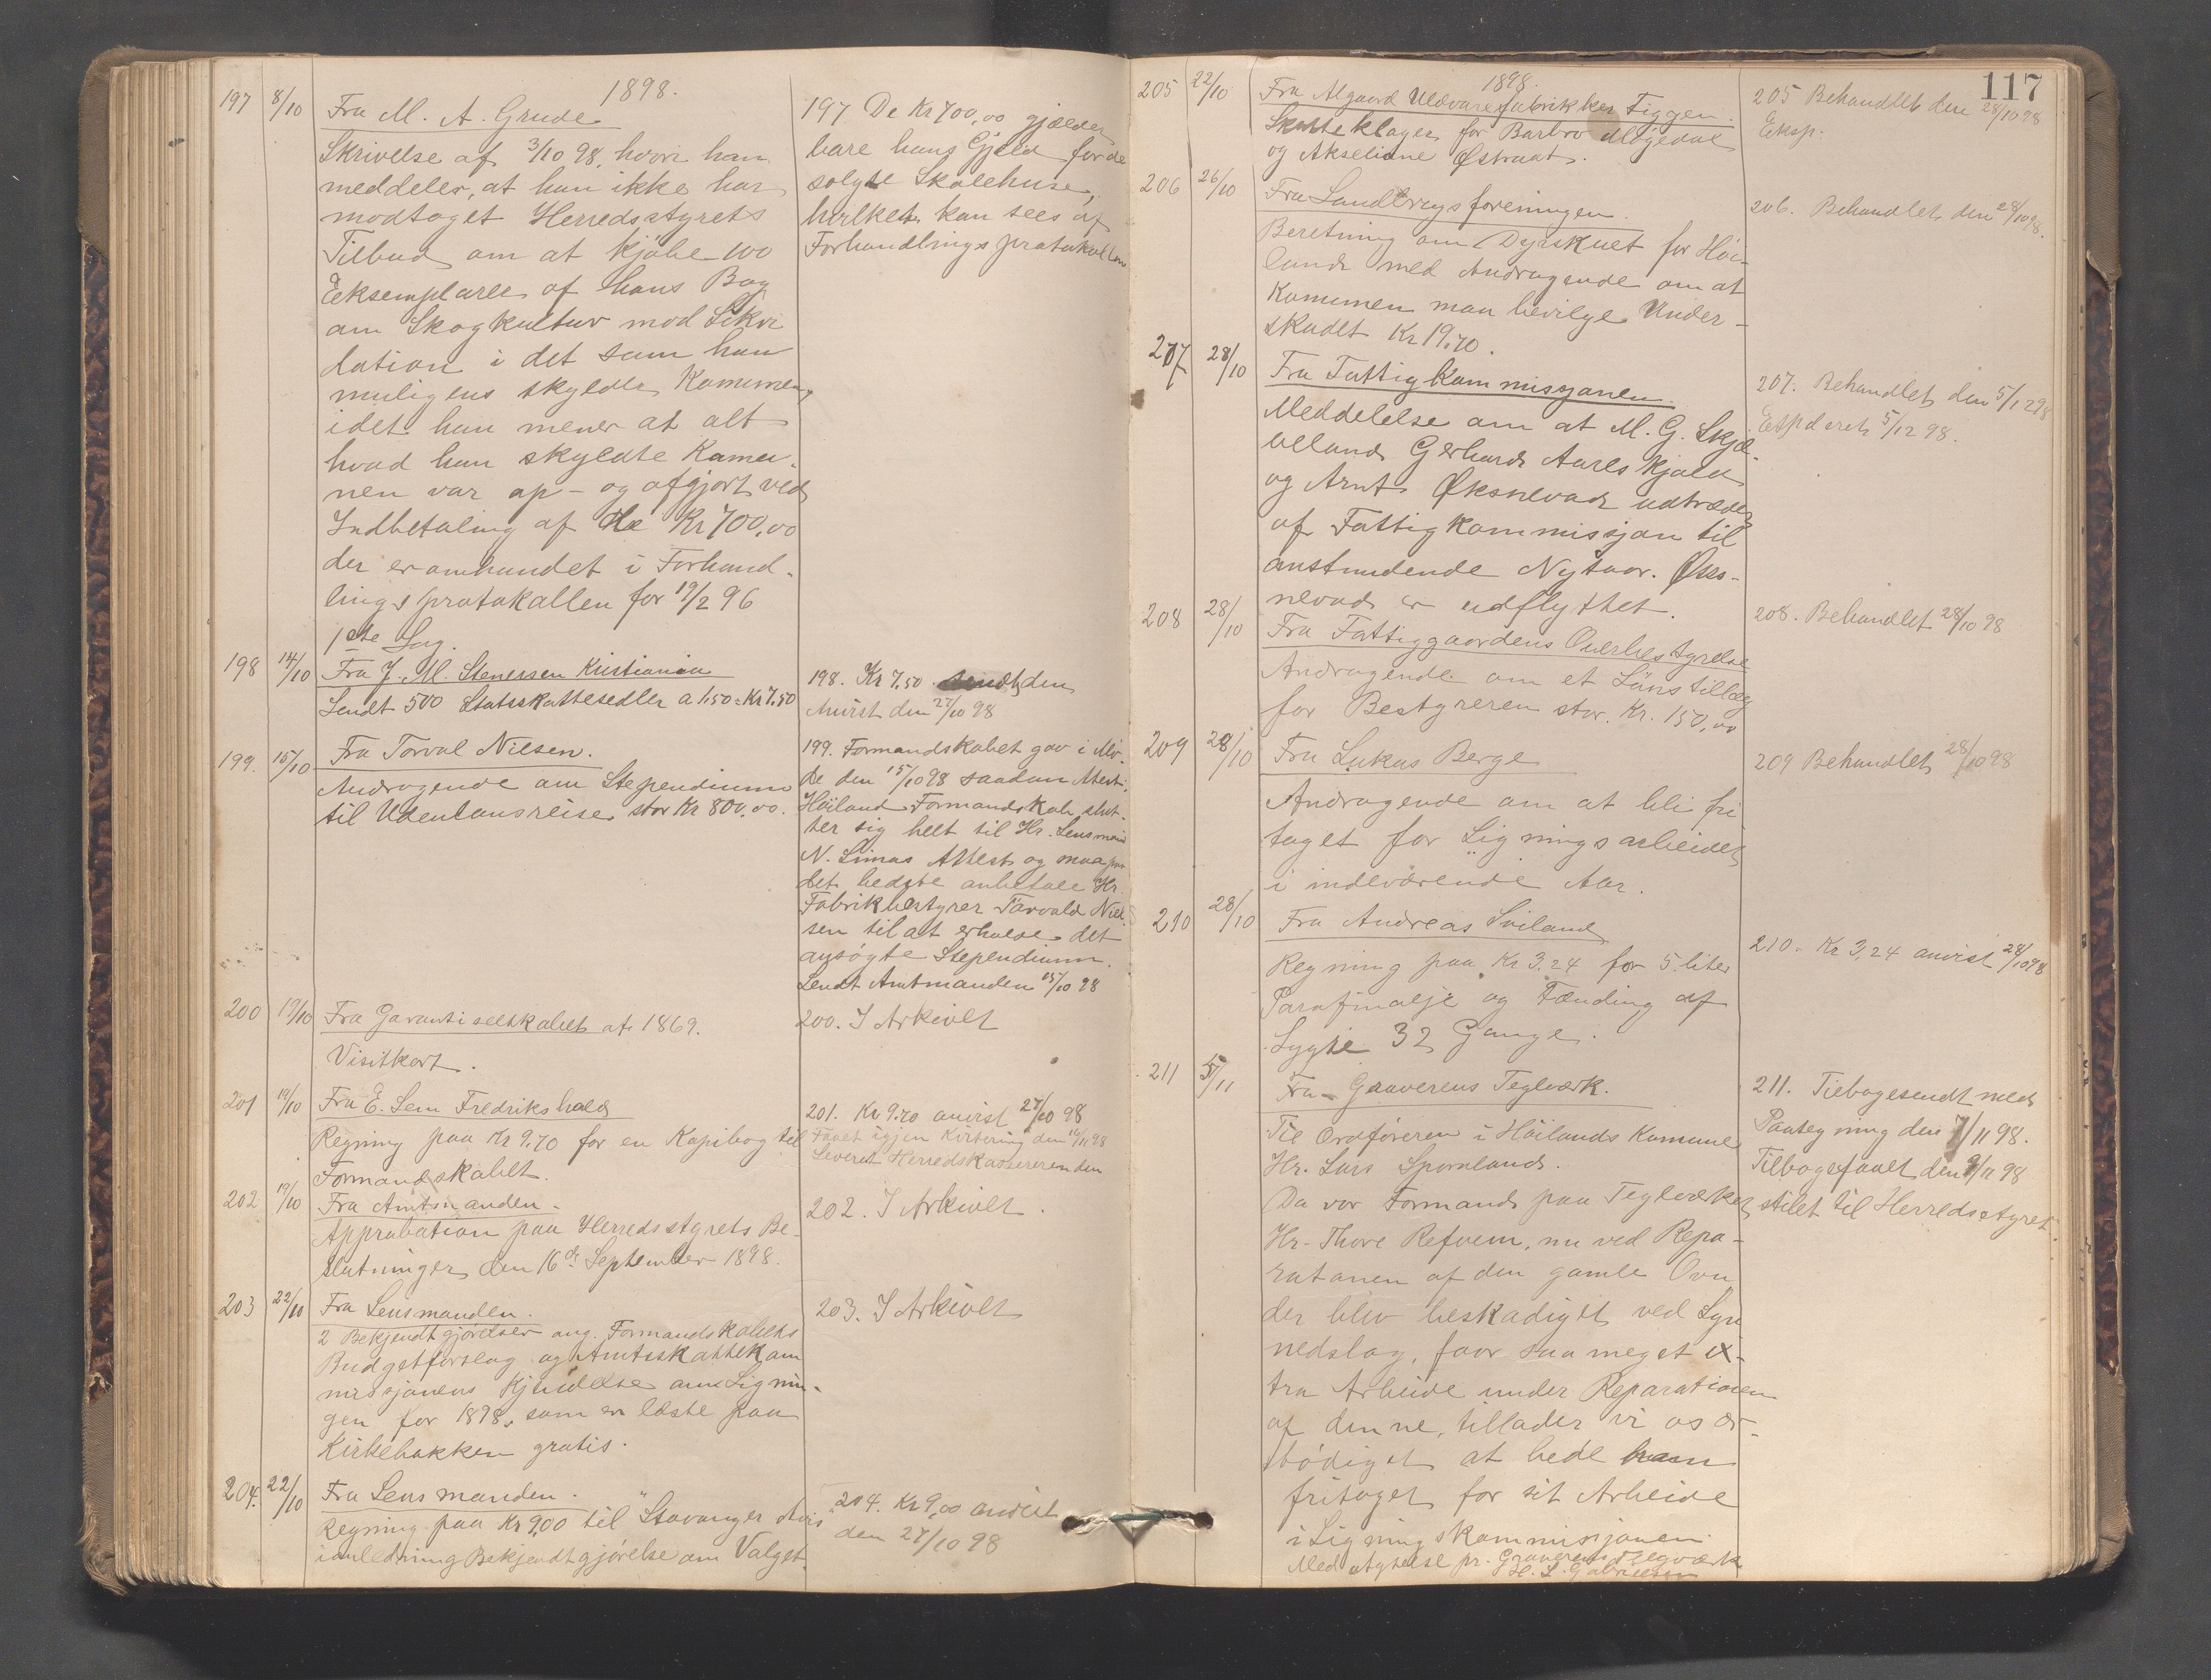 1898.
197 8/10 Fra M. A. Grude
Skrivelse af 3/10 98, hvori han
meddeler, at han ikke har
modtaget Herredsstyrets
Tilbud om at kjøbe 100
Eksemplarer af hans Bog
om Skogkultur mod Likvi
dation i det som han
muligens skylder Kommunen
idet han mener at alt
hvad han skyldte Komu-
nen var op- og afgjort ved
Indbetaling af Kr 700,00
der er omhandlet i Forhand-
lings protokollen for 19/2 96
1ste Sag.
197. De Kr 700,00 gjælder
bare hans Gjæld for de
solgte Skolehuse,
hvilket kan sees af
Forhandlingsprotokollen
198 14/10 Fra J. M. Stenersen Kristiania
Sendt 500 Statsskattesedler a 1.50 = Kr 7.50
198. Kr 7.50 den
Anvist den 27/10 98
199. 15/10 Fra Torval Nilsen.
Andragende om Stependium
til Udenlansreise stor Kr 800,00.
199. Formandskabet gav i Mø-
de den 15/10 98 saadan Attest:
Høiland Formandskab slut-
ter sig helt til Hr. Lensmand
N. Limas Attest og maa paa
det bedste anbefale Hr.
Fabrikbestyrer Torvald Niel-
sen til at erholde det
ansøgte Stependium.
Sendt Amtmanden 15/10 98
200 19/10 Fra Garantiselskabet af 1869.
Visitkort.
200. I Arkivet
201 19/10 Fra E. Sem Fredrikshald
Regning paa Kr 9.70 for en Kopibog til
Formandskabet.
201. Kr 9.70 anvist 27/10 98
Faaet igjen Kvitering den 10/11 98
Leveret Herredskassereren den
202 19/10 Fra Amtmanden.
Approbation paa Herredsstyrets Be-
slutninger den 16de September 1898.
202. I Arkivet.
203 22/10 Fra Lensmanden.
2 Bekjendtgjørelser ang. Formandskabets
Budgetforslag og Amtsskattekom
missjonens Kjendelse om Lignin-
gen for 1898, som er læste paa
Kirkebakken gratis.
203. I Arkivet
204. 22/10 Fra Lensmanden.
Regning paa Kr 9,00 til "Stavanger Avis"
i anledning Bekjendtgjørelse om Valget.
204. Kr 9,00 anvist
den 27/10 98
117
1898.
205 22/10 Fra Algaard Uldvarefabrikker Figgen.
Skatteklager for Barbro
og Akseliane Østraat.
205 Behandlet den 28/10 98
Eksp.
206 26/10 Fra Landbrugsforeningen.
Beretning om Dyrskuet for Høi-
land med Andragende om at
Kommunen maa bevilge Under-
skudet Kr 19.70.
206. Behandlet den 28/10 98.
207 28/10 Fra Fattigkommissjonen.
Meddelelse om at M. G. Skjæ-
velland Gerhard Aareskjold
og Arnt Øksnevad udtræder
af Fattigkommissjon til
anstundende Nytaar. Øks-
nevad er udflyttet.
207. Behandlet den 5/12 98
Expederet 5/12 98.
208 28/10 Fra Fattiggaardens Overbestyrelse
Andragende om et Lønstillæg
for Bestyreren stor. Kr. 150,00
208. Behandlet 28/10 98
209 28/10 Fra Lukas Berge
Andragende om at bli fri
taget for Ligningsarbeidet
i indeværende Aar.
209 Behandlet 28/10 98
210 28/10 Fra Andreas Sviland
Regning paa Kr 3.24 for 5 liter
Parafinolje og Tænding af
Lygte 32 Gange.
210. Kr 3,24 anvist 28/10 98
211 5/11 Fra Graverens Teglværk.
Til Ordføreren i Høilands Komune
Hr. Lars Spornland.
Da vor Formand paa Teglværket
Hr. Thore Refvem, nu ved Repa-
rationen af den gamle Ovn
der blev beskadiget ved Lyn
nedslag, faar saa meget ex-
tra Arbeide under Reparationen
af denne, tillader vi os ær-
bødigst at bede ham
fritaget for sit Arbeide
i Ligningskommissjonen.
Med agtelse pr. Graverens Teglværk
H. S. Gabrielsen
211. Tilbagesendt med
Paategning den 7/11 98.
Tilbagefaaet den 9/11 98
stilet til Herredsstyret.